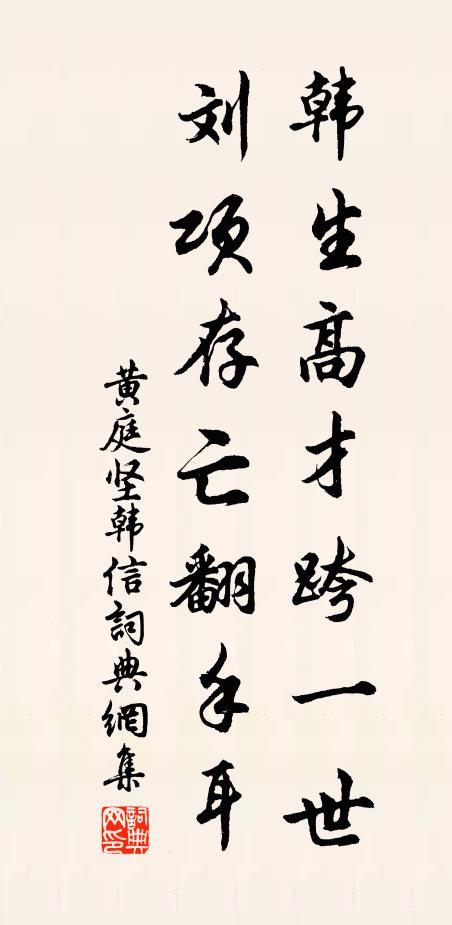 韩生高才跨一世
刘项存亡翻手耳
黄庭坚韩信詞典網集
詞典網印